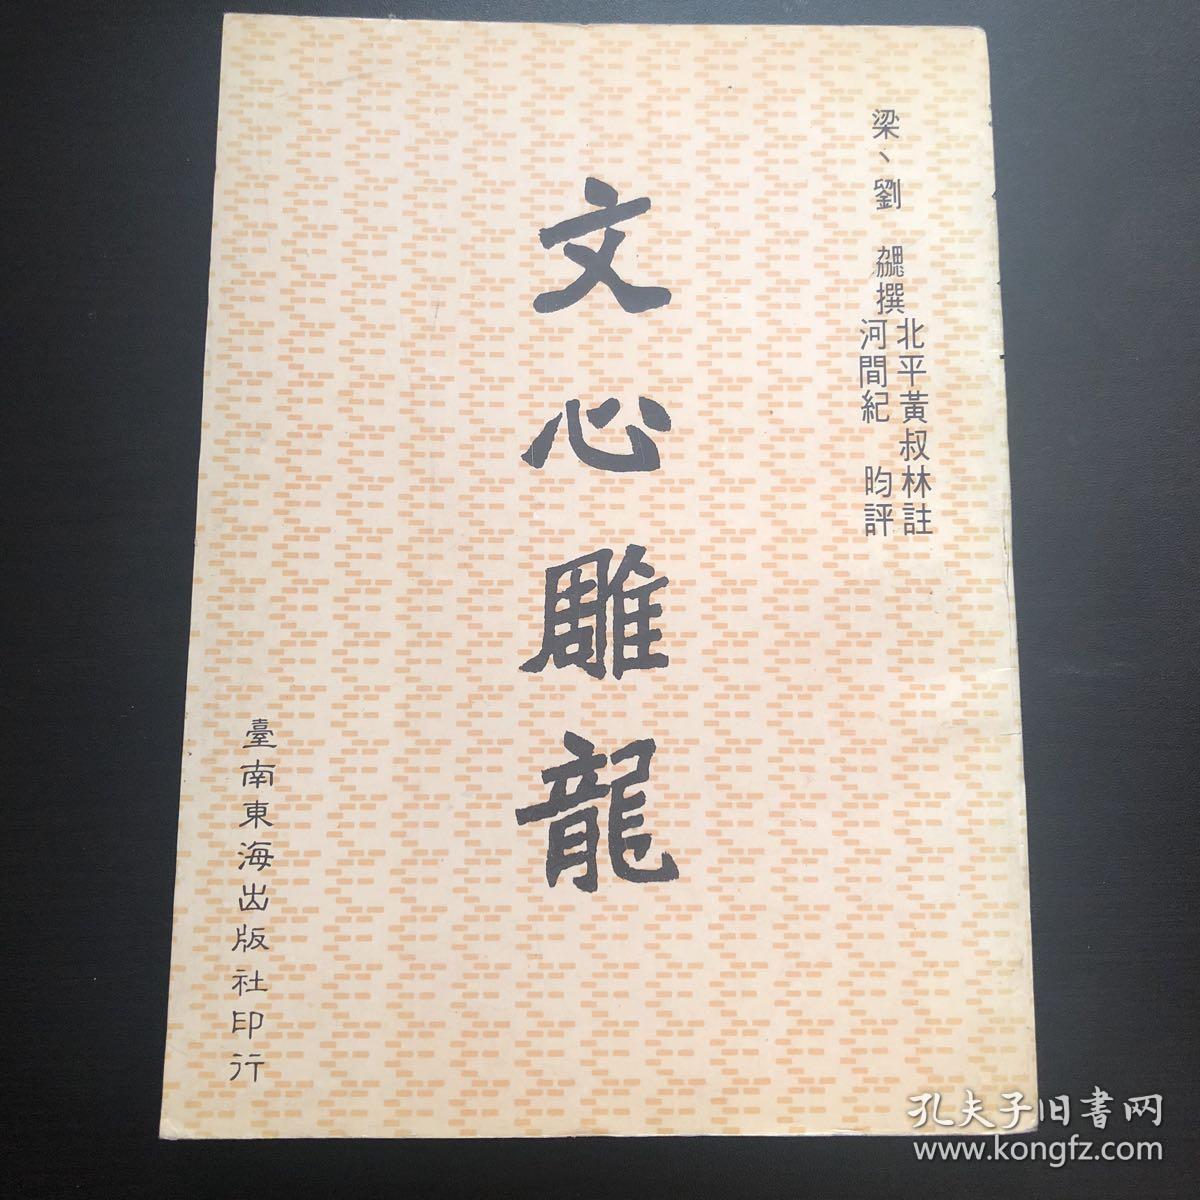 梁、劉　勰撰
北平黃叔林註
河間紀　昀評
文心雕龍
臺南東海出版社印行
孔夫子旧書网
www.kongfz.com